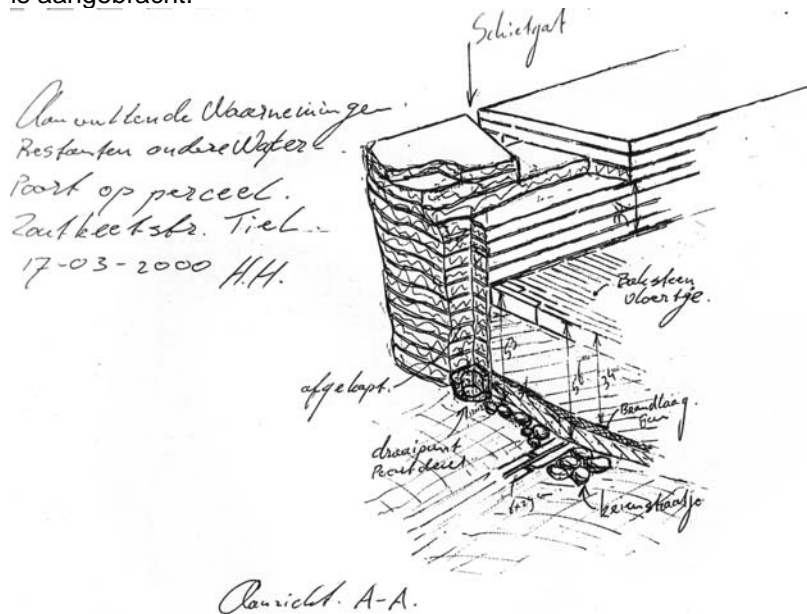 is aangebracht.
Schietgat
Aanvullende Waarnemingen.
Restanten oudere Water-
Poort op perceel.
Zoutkeetstr. Tiel
17-03-2000 H.H.
Baksteen
vloertje.
53
56
34
afgekapt.
Brandlaag
draaipunt
Poortdeur
keienstraatje
Aanzicht. A-A.